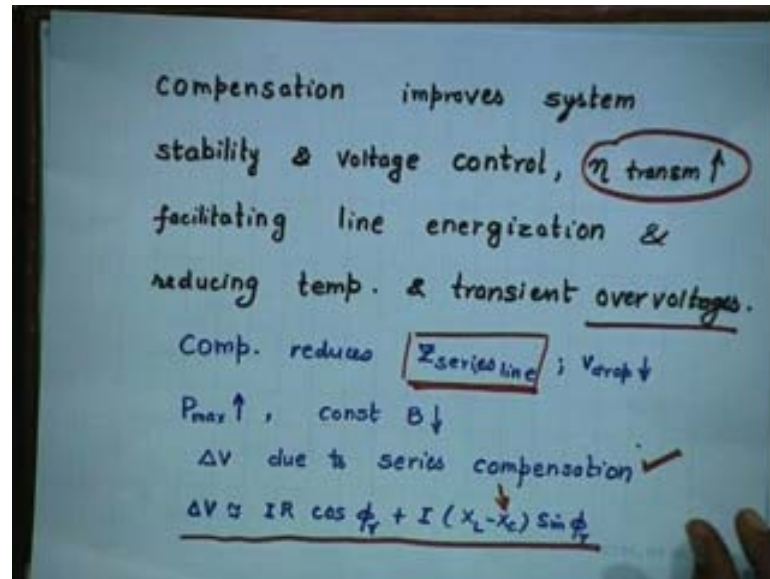 Compensation improves system
stability & voltage control, η transm ↑
facilitating line energization &
reducing temp. & transient overvoltages.
Comp. reduces Z series line ; Vdrop ↓
Pmax ↑ , const B ↓
ΔV due to series compensation ✓
ΔV ≃ IR cos ϕr + I (XL-XC) Sin ϕr